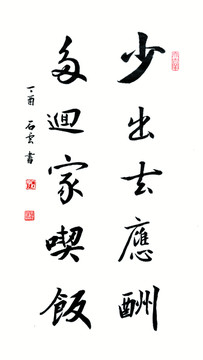 少出去應酬
多迴家喫飯
丁酉 石雲書